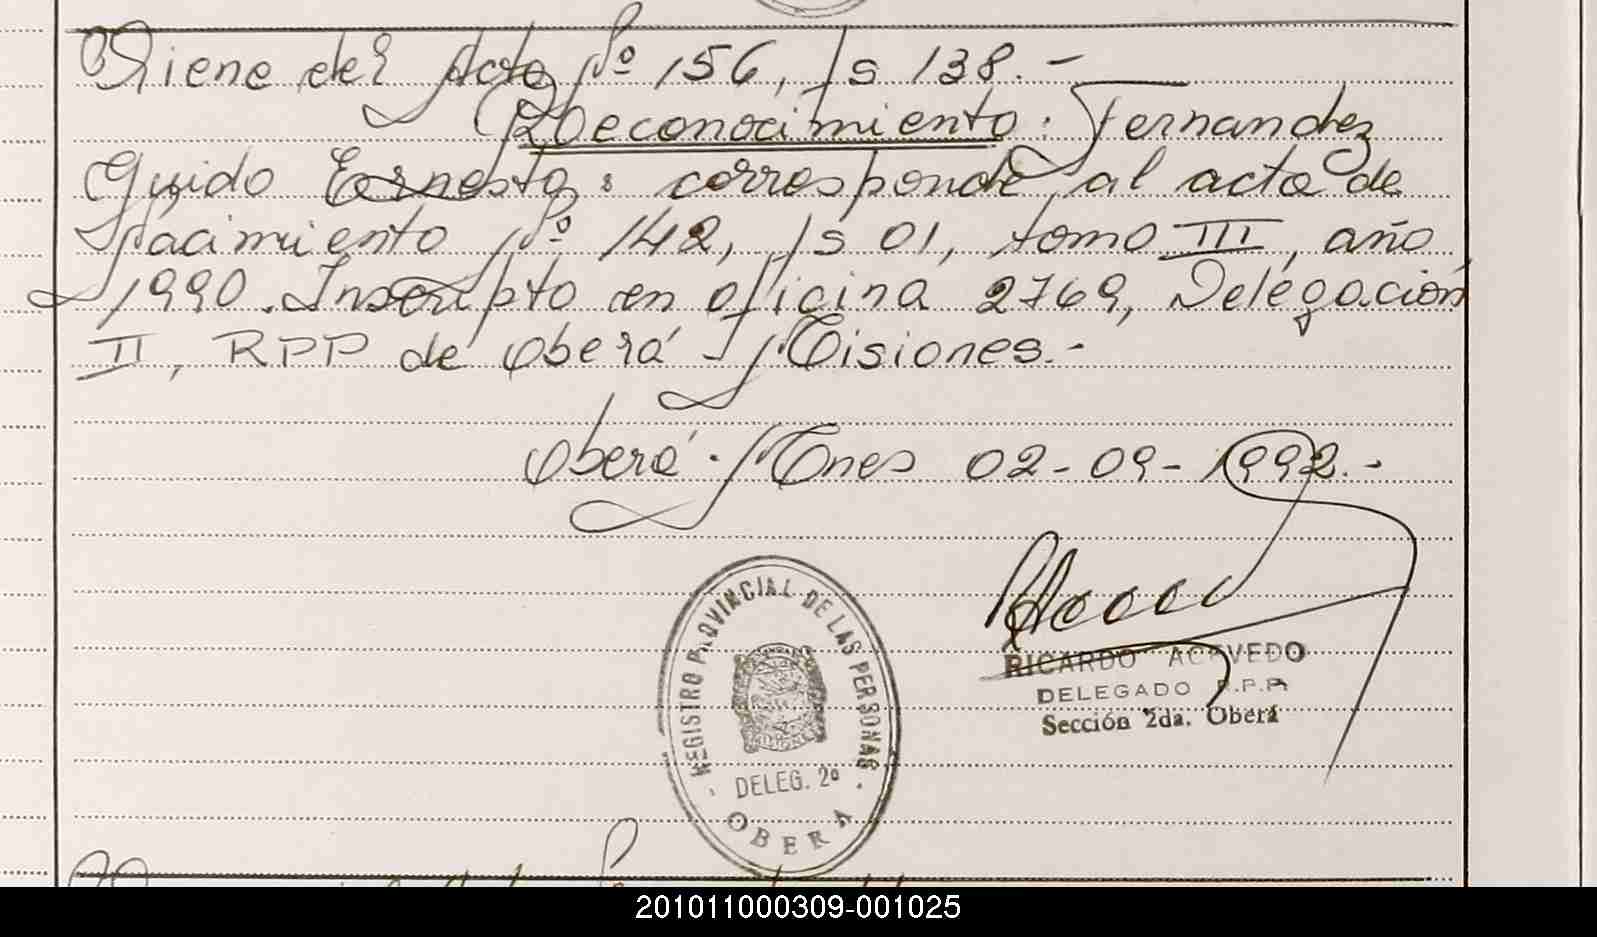 Viene del Acta Nº 156, fs 138.-
Reconocimiento: Fernandez
Guido Ernesto: corresponde al acta de
Nacimiento Nº 142, fs 01, tomo III, año
1990. Inscripto en oficina 2769, Delegación
II, RPP de Oberá - Misiones.-
Oberá - Mnes 02-09-1992.-
REGISTRO PROVINCIAL DE LAS PERSONAS
DELEG. 2º
OBERA
RICARDO ACEVEDO
DELEGADO R.P.P.
Sección 2da. Oberá
201011000309-001025